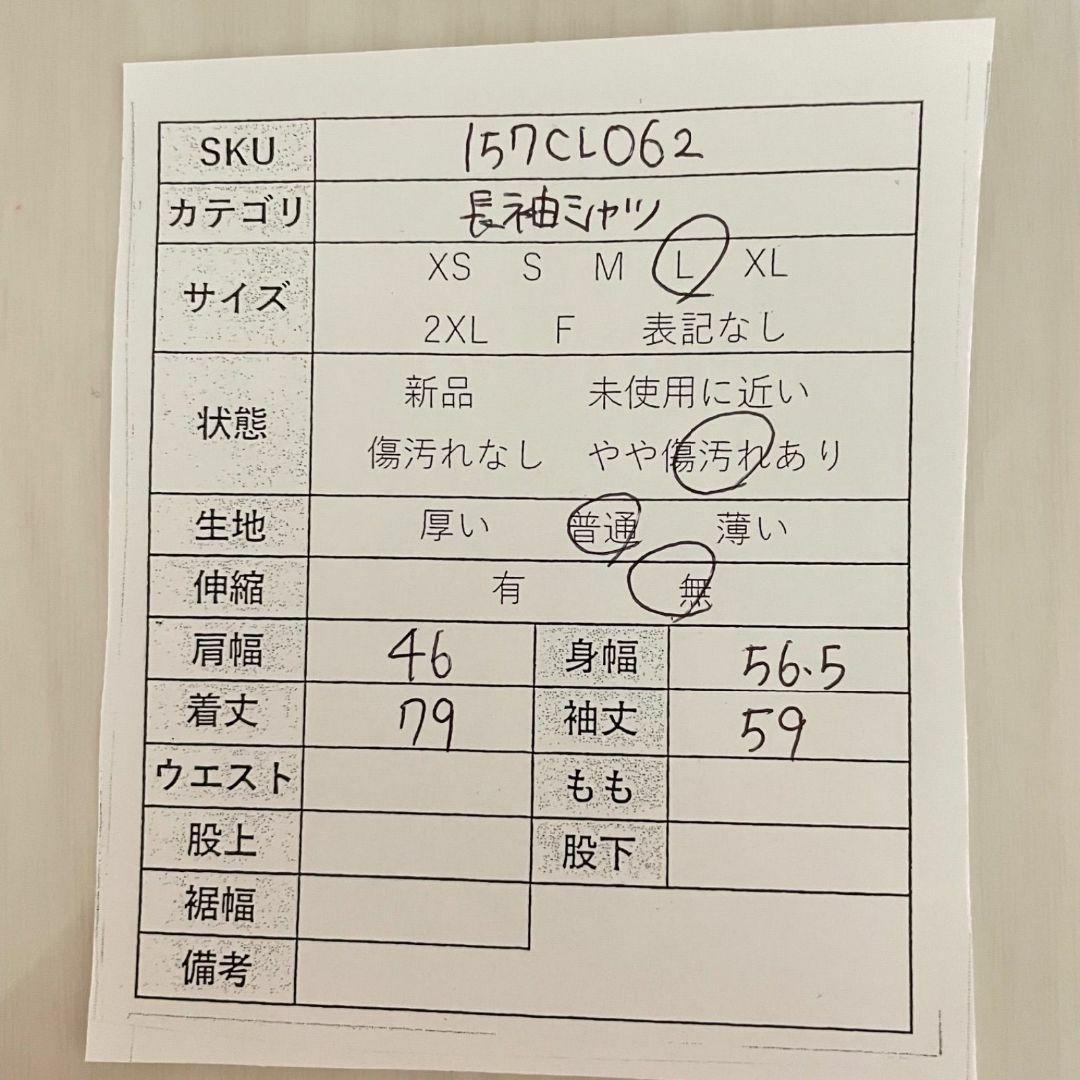 SKU 157CL062
カテゴリ 長袖シャツ
サイズ XS S M L XL
2XL F 表記なし
状態 新品 未使用に近い
傷汚れなし やや傷汚れあり
生地 厚い 普通 薄い
伸縮 有 無
肩幅 46 身幅 56.5
着丈 79 袖丈 59
ウエスト もも
股上 股下
裾幅
備考